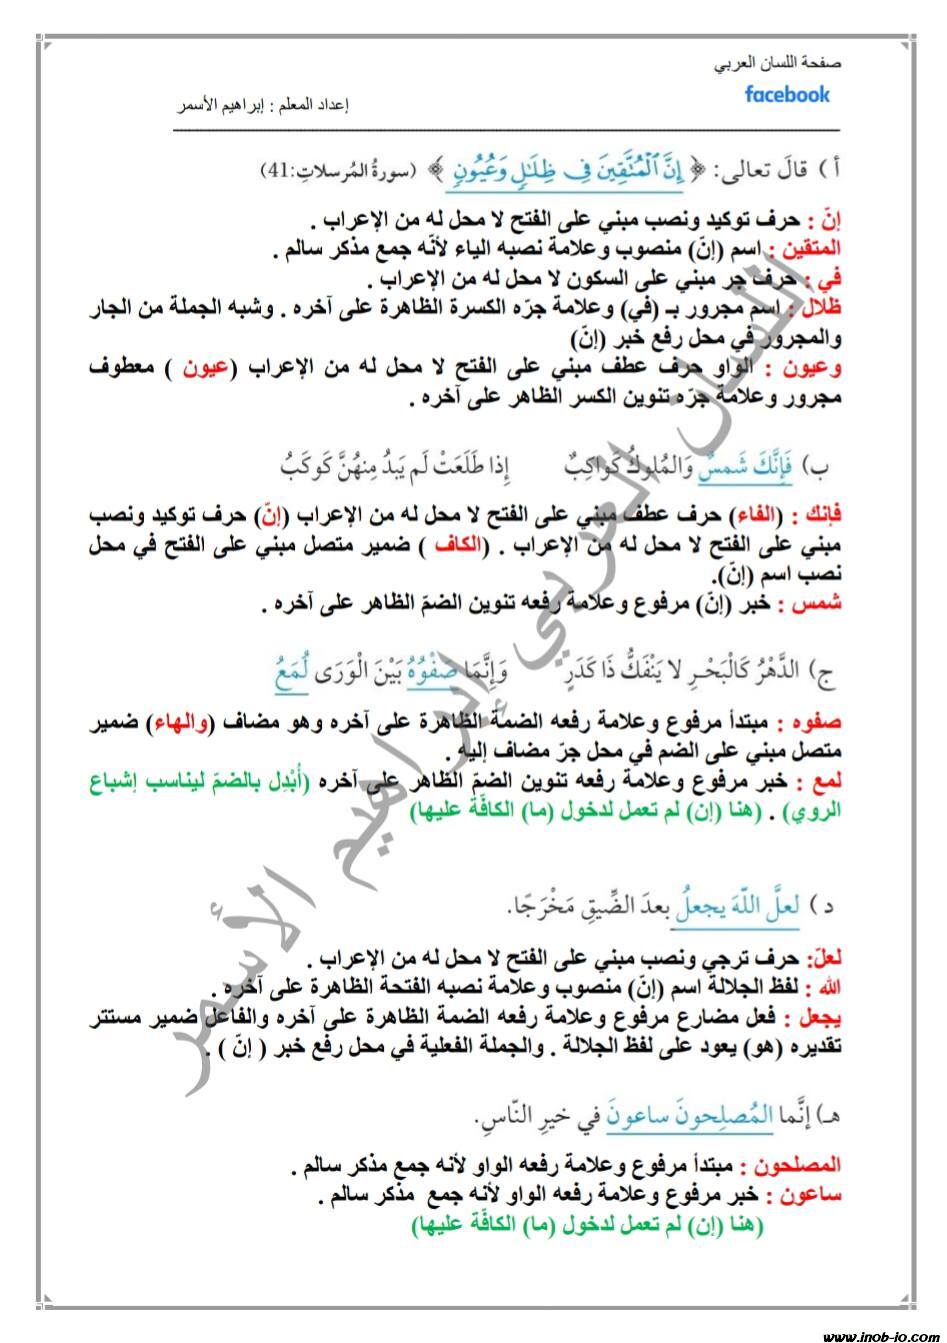 صفحة اللسان العربي
facebook
إعداد المعلم : إبراهيم الأسمر
أ ) قالَ تعالى: ﴿ إِنَّ ٱلْمُتَّقِينَ فِي ظِلَٰلٍ وَعُيُونٍ ﴾ (سورةُ المُرسلاتِ:41)
إنّ : حرف توكيد ونصب مبني على الفتح لا محل له من الإعراب .
المتقين : اسم (إنّ) منصوب وعلامة نصبه الياء لأنّه جمع مذكر سالم .
في : حرف جر مبني على السكون لا محل له من الإعراب .
ظلال : اسم مجرور بـ (في) وعلامة جرّه الكسرة الظاهرة على آخره . وشبه الجملة من الجار
والمجرور في محل رفع خبر (إنّ)
وعيون : الواو حرف عطف مبني على الفتح لا محل له من الإعراب (عيون ) معطوف
مجرور وعلامة جرّه تنوين الكسر الظاهر على آخره .
ب) فَإِنَّكَ شَمسٌ وَالمُلوكُ كَواكِبٌ إِذا طَلَعَتْ لَم يَبدُ مِنهُنَّ كَوكَبُ
فإنك : (الفاء) حرف عطف مبني على الفتح لا محل له من الإعراب (إنّ) حرف توكيد ونصب
مبني على الفتح لا محل له من الإعراب . (الكاف ) ضمير متصل مبني على الفتح في محل
نصب اسم (إنّ).
شمس : خبر (إنّ) مرفوع وعلامة رفعه تنوين الضمّ الظاهر على آخره .
ج) الدَّهْرُ كَالْبَحْرِ لا يَنْفَكُّ ذَا كَدَرٍ وَإِنَّمَا صَفْوُهُ بَيْنَ الْوَرَى لُمَعُ
صفوه : مبتدأ مرفوع وعلامة رفعه الضمة الظاهرة على آخره وهو مضاف (والهاء) ضمير
متصل مبني على الضم في محل جرّ مضاف إليه .
لمع : خبر مرفوع وعلامة رفعه تنوين الضمّ الظاهر على آخره (أُبْدِل بالضمّ ليناسب إشباع
الروي) . (هنا (إن) لم تعمل لدخول (ما) الكافّة عليها)
د ) لعلَّ اللّهَ يجعلُ بعدَ الضِّيقِ مَخْرَجًا.
لعلّ: حرف ترجي ونصب مبني على الفتح لا محل له من الإعراب .
الله : لفظ الجلالة اسم (إنّ) منصوب وعلامة نصبه الفتحة الظاهرة على آخره .
يجعل : فعل مضارع مرفوع وعلامة رفعه الضمة الظاهرة على آخره والفاعل ضمير مستتر
تقديره (هو) يعود على لفظ الجلالة . والجملة الفعلية في محل رفع خبر ( إنّ ) .
هـ) إنَّما المُصلِحونَ ساعونَ في خيرِ النّاسِ.
المصلحون : مبتدأ مرفوع وعلامة رفعه الواو لأنه جمع مذكر سالم .
ساعون : خبر مرفوع وعلامة رفعه الواو لأنه جمع مذكر سالم .
(هنا (إن) لم تعمل لدخول (ما) الكافّة عليها)
اللسان العربي إبراهيم الأسمر
www.inob-jo.com